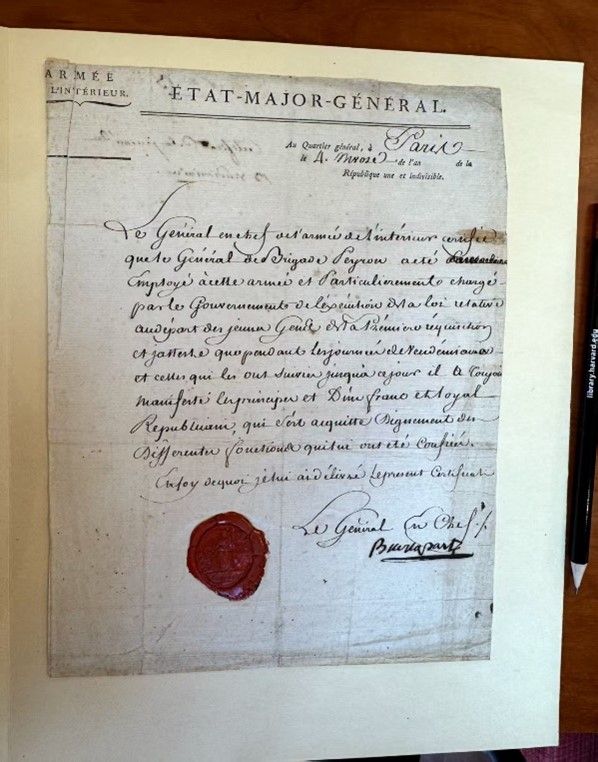 ARMÉE
L'INTÉRIEUR.
ÉTAT-MAJOR-GÉNÉRAL.
Au Quartier général, à Paris
le 4. nivose de l'an de la
République une et indivisible.
Le Général en chef de l'armée de l'intérieur certifie
que le Général de Brigade Peyron a été
Employé à cette armée et Particulierement chargé
par le Gouvernement de l'éxécution de la loi relative
au départ des jeunes Gens de la Première réquisition
et j'atteste que pendant les journées de Vendémiaire
et celles qui les ont suivies jusqu'à ce jour il a toujours
manifesté les principes et D'un franc et loyal
Republicain, qui s'est acquitté Dignement des
Differentes fonctions qui lui ont été confiées.
En foy de quoi je lui ai délivré le present Certificat
Le Général En Chef
Buonaparte
library.harvard.edu